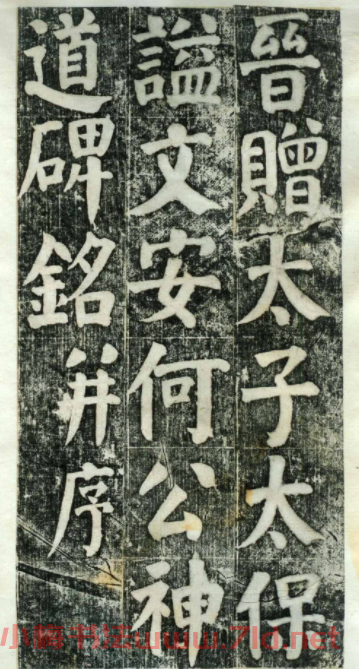 晉贈太子太保
謚文安何公神
道碑銘并序
小隣书法www.7ld.net